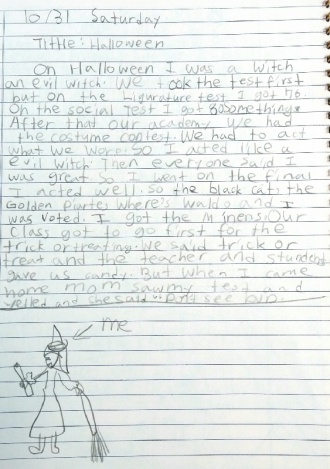 10/31 Saturday
Title: Halloween
On Halloween I was a Witch
an evil witch. We took the test first
but on the Ligurature test I got 70.
On the social test I got 80 somethings
After that our academy We had
the costume contest. We had to act
what we wore. So I acted like a
evil witch. Then everyone said I
was great so I went on the final
I acted well. So the black cat, the
Golden Piartes Where's Waldo and I
was voted. I got the Minens. Our
Class got to go first for the
trick or treating. We said trick or
treat and the teacher and stundent
gave us candy. But when I came
home mom saw my test and
yelled and she said
me